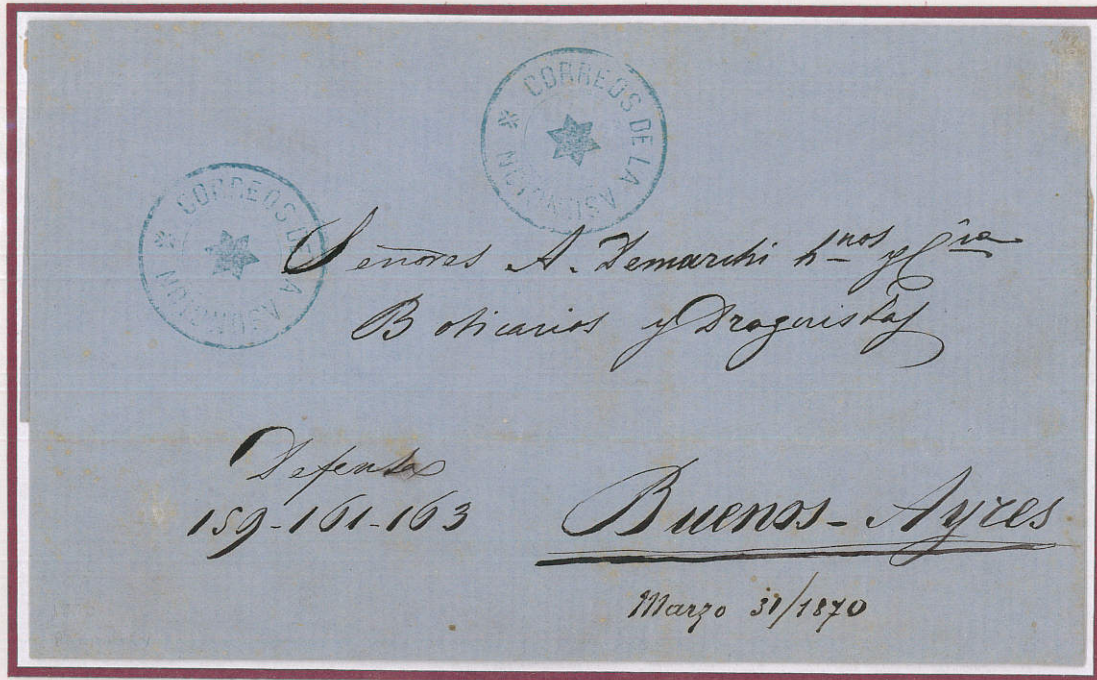 CORREOS DE LA ASUNCION *
CORREOS DE LA ASUNCION *
Señores A. Demarchi h<sup>nos</sup> y C<sup>ia</sup>
Boticarios y Droguistas
Defensa
159-161-163
Buenos-Ayres
Marzo 31/1870